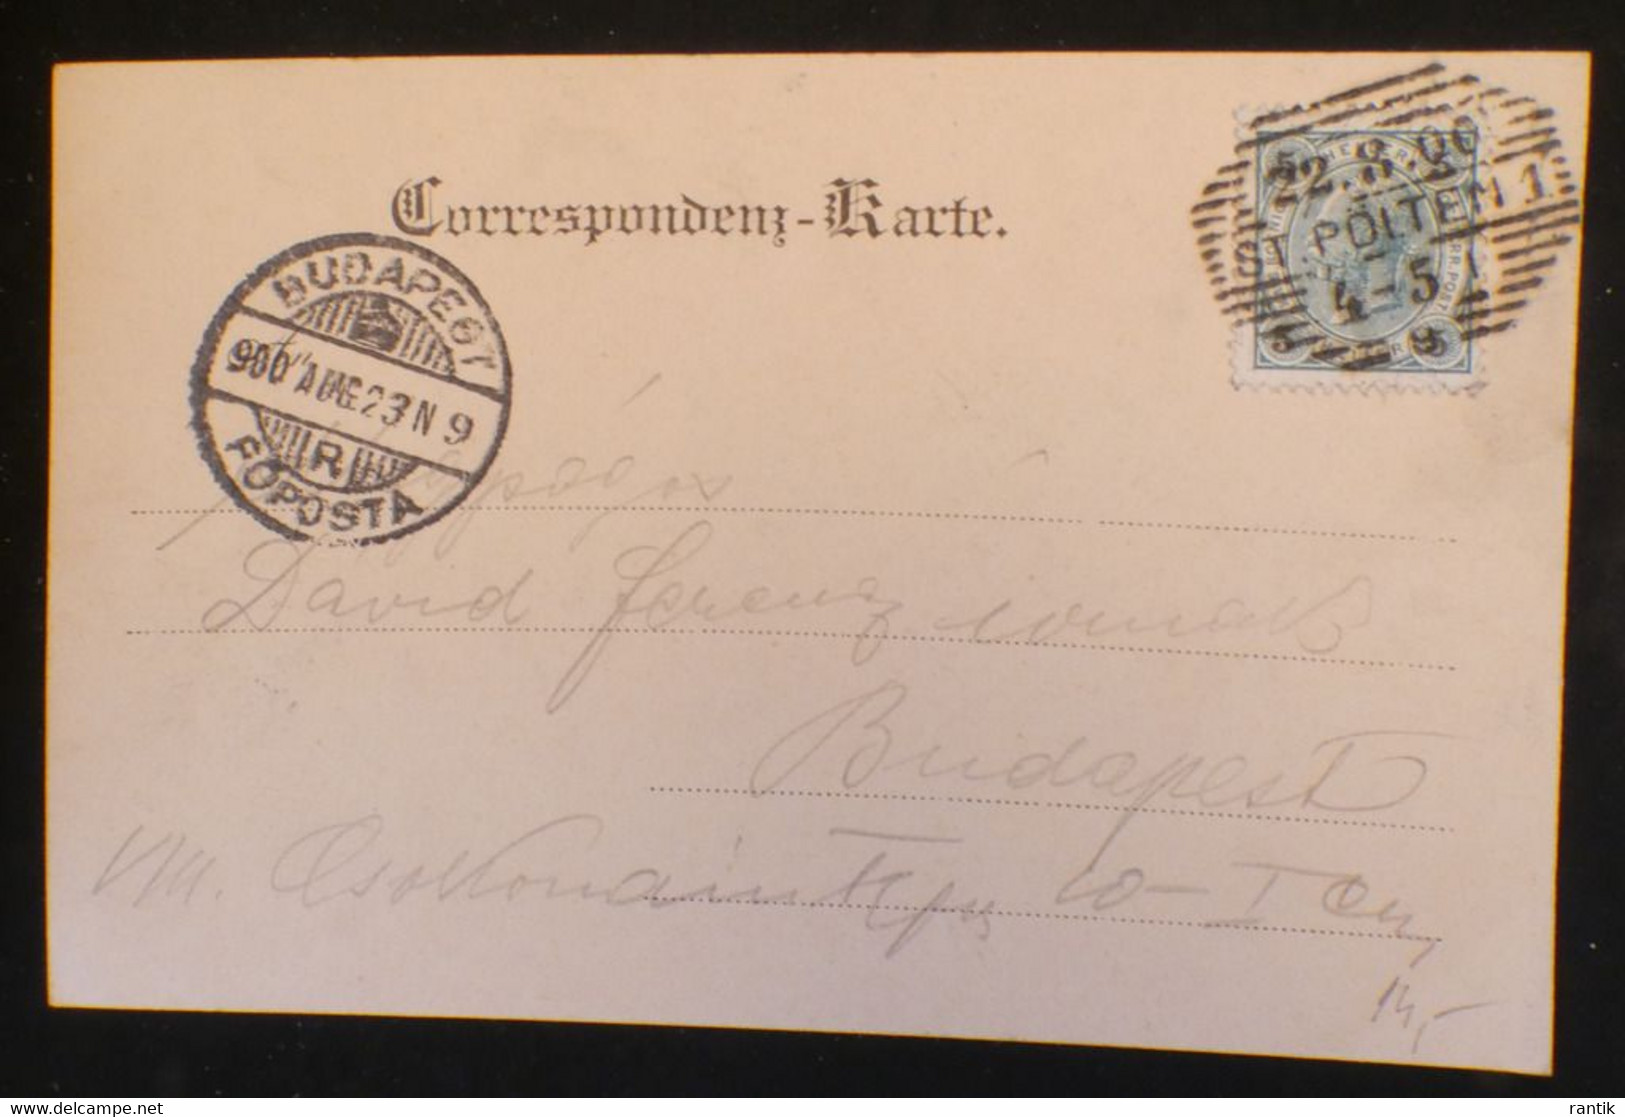 Correspondenz-Karte.
22.8.00
ST. PÖLTEN 1
4-5
BUDAPEST
900 AUG 23 N 9
R
FŐPOSTA
Dávid Ferenc
Budapest
VIII. 10 - I em,
14,-
Delcampe.net
rantik